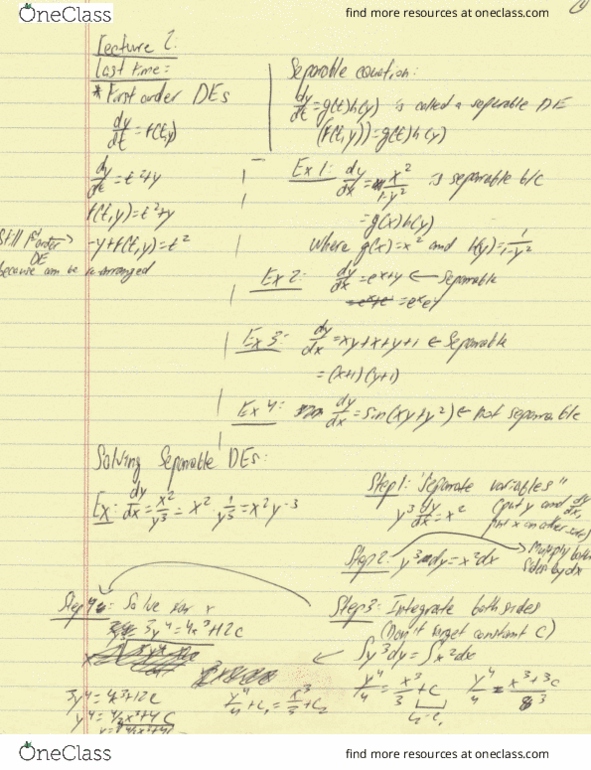 OneClass
find more resources at oneclass.com
Lecture 2:
Last time:
* First order DEs
dy/dt = f(t,y)
dy/dt = t²+y
f(t,y) = t²+y
-y+f(t,y) = t²
Still 1st order DE
because can be rearranged
Separable equation:
dy/dt = g(t)h(y) is called a separable DE
(f(t,y)) = g(t)h(y)
Ex 1: dy/dx = x²/1-y² is separable b/c
= g(x)h(y)
where g(x) = x² and h(y) = 1/1-y²
Ex 2: dy/dx = e^x+y ← Separable
= e^x e^y
Ex 3: dy/dx = xy+x+y+1 ← Separable
= (x+1)(y+1)
Ex 4: dy/dx = sin(xy+y²) ← not separable
Solving Separable DEs:
Ex: dy/dx = x²/y³ = x² · 1/y³ = x²y^-3
Step 1: "Separate variables"
y³ dy/dx = x²
(put y and dy/dx,
put x on other side)
Step 2: y³dy = x²dx
→ Multiply both
sides by dx
Step 3: Integrate both sides
(Don't forget constant C)
∫y³dy = ∫x²dx
y⁴/4 = x³/3 + C
y⁴/4 = x³+3c/3
y⁴/4 + C₁ = x³/3 + C₂
Step 4: Solve for x
3y⁴ = 4x³+12c
3y⁴ = 4x³+12c
OneClass
find more resources at oneclass.com